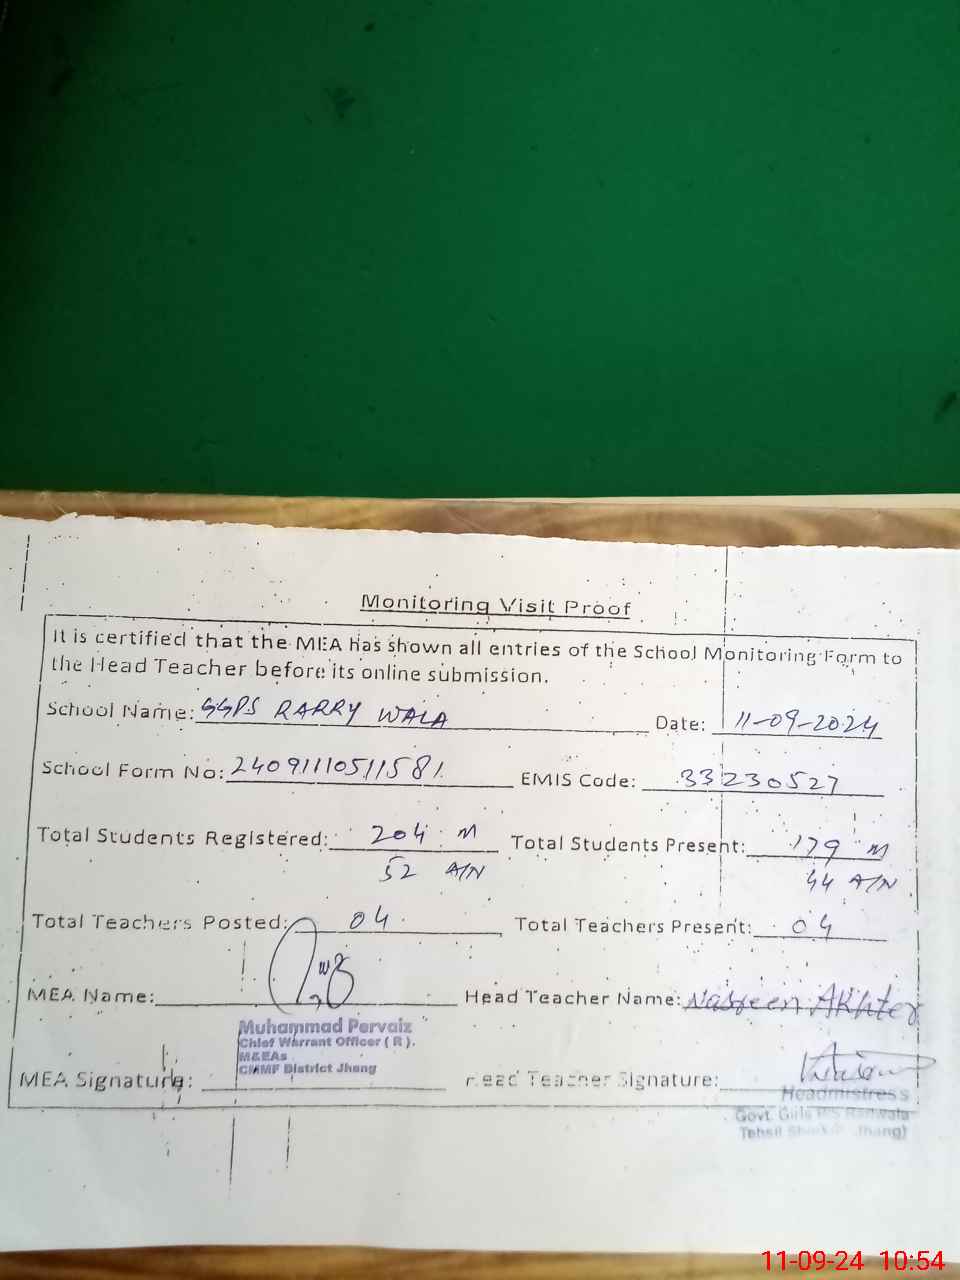 Monitoring Visit Proof
It is certified that the MEA has shown all entries of the School Monitoring Form to
the Head Teacher before its online submission.
School Name: GGPS RARRY WALA Date: 11-09-2024
School Form No: 24091110511581 EMIS Code: 33230527
Total Students Registered: 204 M Total Students Present: 179 M
52 A/N 44 A/N
Total Teachers Posted: 04 Total Teachers Present: 04
MEA Name: Head Teacher Name: Nasreen Akhter
Muhammad Pervaiz
Chief Warrant Officer ( R ).
M&EAs
CMMF District Jhang
MEA Signature: Head Teacher Signature:
Headmistress
Govt. Girls P/S
Tehsil Jhang)
11-09-24 10:54